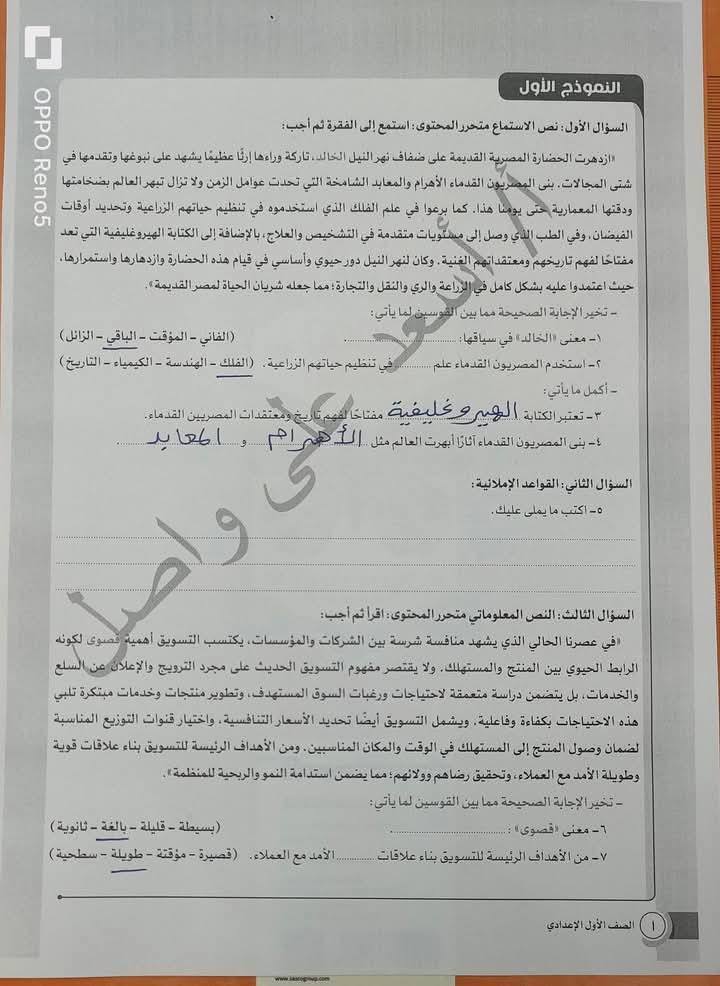 OPPO Reno5
النموذج الأول
السؤال الأول: نص الاستماع متحرر المحتوى: استمع إلى الفقرة ثم أجب:
«ازدهرت الحضارة المصرية القديمة على ضفاف نهر النيل الخالد، تاركة وراءها إرثًا عظيمًا يشهد على نبوغها وتقدمها في
شتى المجالات. بنى المصريون القدماء الأهرام والمعابد الشامخة التي تحدت عوامل الزمن ولا تزال تبهر العالم بضخامتها
ودقتها المعمارية حتى يومنا هذا. كما برعوا في علم الفلك الذي استخدموه في تنظيم حياتهم الزراعية وتحديد أوقات
الفيضان، وفي الطب الذي وصل إلى مستويات متقدمة في التشخيص والعلاج، بالإضافة إلى الكتابة الهيروغليفية التي تعد
مفتاحًا لفهم تاريخهم ومعتقداتهم الغنية. وكان لنهر النيل دور حيوي وأساسي في قيام هذه الحضارة وازدهارها واستمرارها،
حيث اعتمدوا عليه بشكل كامل في الزراعة والري والنقل والتجارة؛ مما جعله شريان الحياة لمصر القديمة».
- تخير الإجابة الصحيحة مما بين القوسين لما يأتي:
١- معنى «الخالد» في سياقها: .................... (الفاني - المؤقت - الباقي - الزائل)
٢- استخدم المصريون القدماء علم .......... في تنظيم حياتهم الزراعية. (الفلك - الهندسة - الكيمياء - التاريخ)
- أكمل ما يأتي:
٣- تعتبر الكتابة الهيروغليفية مفتاحًا لفهم تاريخ ومعتقدات المصريين القدماء.
٤- بنى المصريون القدماء آثارًا أبهرت العالم مثل الأهرام و المعابد.
السؤال الثاني: القواعد الإملائية:
٥- اكتب ما يملى عليك.
السؤال الثالث: النص المعلوماتي متحرر المحتوى: اقرأ ثم أجب:
«في عصرنا الحالي الذي يشهد منافسة شرسة بين الشركات والمؤسسات، يكتسب التسويق أهمية قصوى لكونه
الرابط الحيوي بين المنتج والمستهلك. ولا يقتصر مفهوم التسويق الحديث على مجرد الترويج والإعلان عن السلع
والخدمات، بل يتضمن دراسة متعمقة لاحتياجات ورغبات السوق المستهدف، وتطوير منتجات وخدمات مبتكرة تلبي
هذه الاحتياجات بكفاءة وفاعلية. ويشمل التسويق أيضًا تحديد الأسعار التنافسية، واختيار قنوات التوزيع المناسبة
لضمان وصول المنتج إلى المستهلك في الوقت والمكان المناسبين. ومن الأهداف الرئيسة للتسويق بناء علاقات قوية
وطويلة الأمد مع العملاء، وتحقيق رضاهم وولائهم؛ مما يضمن استدامة النمو والربحية للمنظمة».
- تخير الإجابة الصحيحة مما بين القوسين لما يأتي:
٦- معنى «قصوى»: .................... (بسيطة - قليلة - بالغة - ثانوية)
٧- من الأهداف الرئيسة للتسويق بناء علاقات .......... الأمد مع العملاء. (قصيرة - مؤقتة - طويلة - سطحية)
١ الصف الأول الإعدادي
أ/ أسعد على واصل